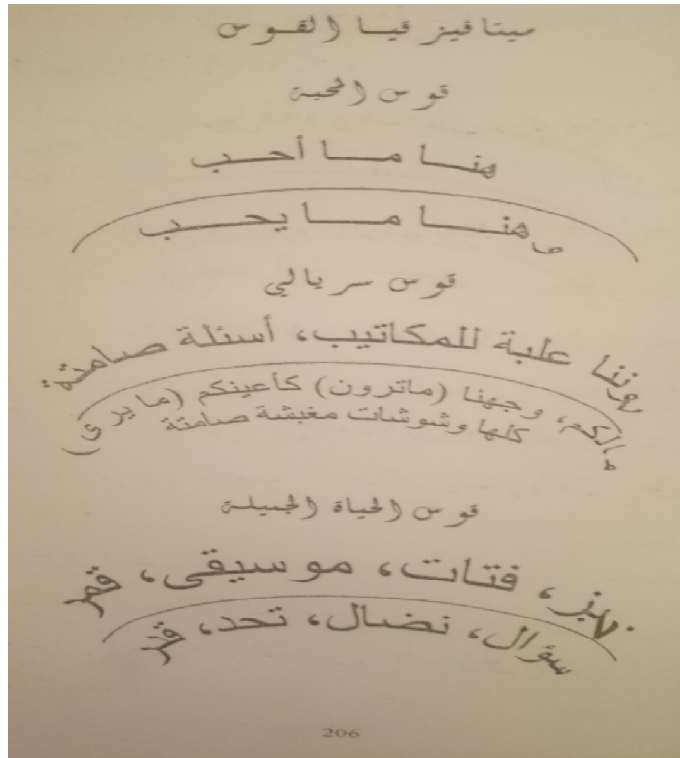 ميتافيزيقيا القوس
قوس المحبة
هنا ما أحب
وهنا ما يحب
قوس سريالي
علبة للمكاتيب، أسئلة صامتة
مالكم، وجهنا (ماترون) كأعينكم (ما يرى)
كلها وشوشات مغبشة صامتة
قوس الحياة الجميلة
خبز، فتات، موسيقى، قمر
سؤال، نضال، تحد، قدر
206